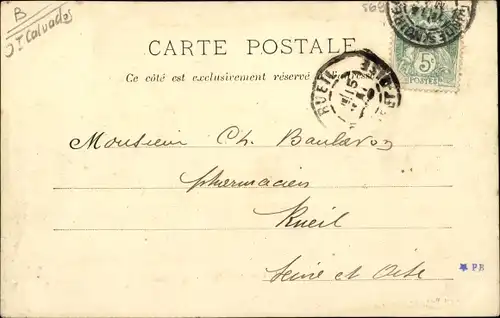 B
CARTE POSTALE
Ce côté est exclusivement réservé
5c
POSTES
RUEIL
Monsieur Ch. Baulavon
pharmacien
Rueil
Seine et Oise
PE